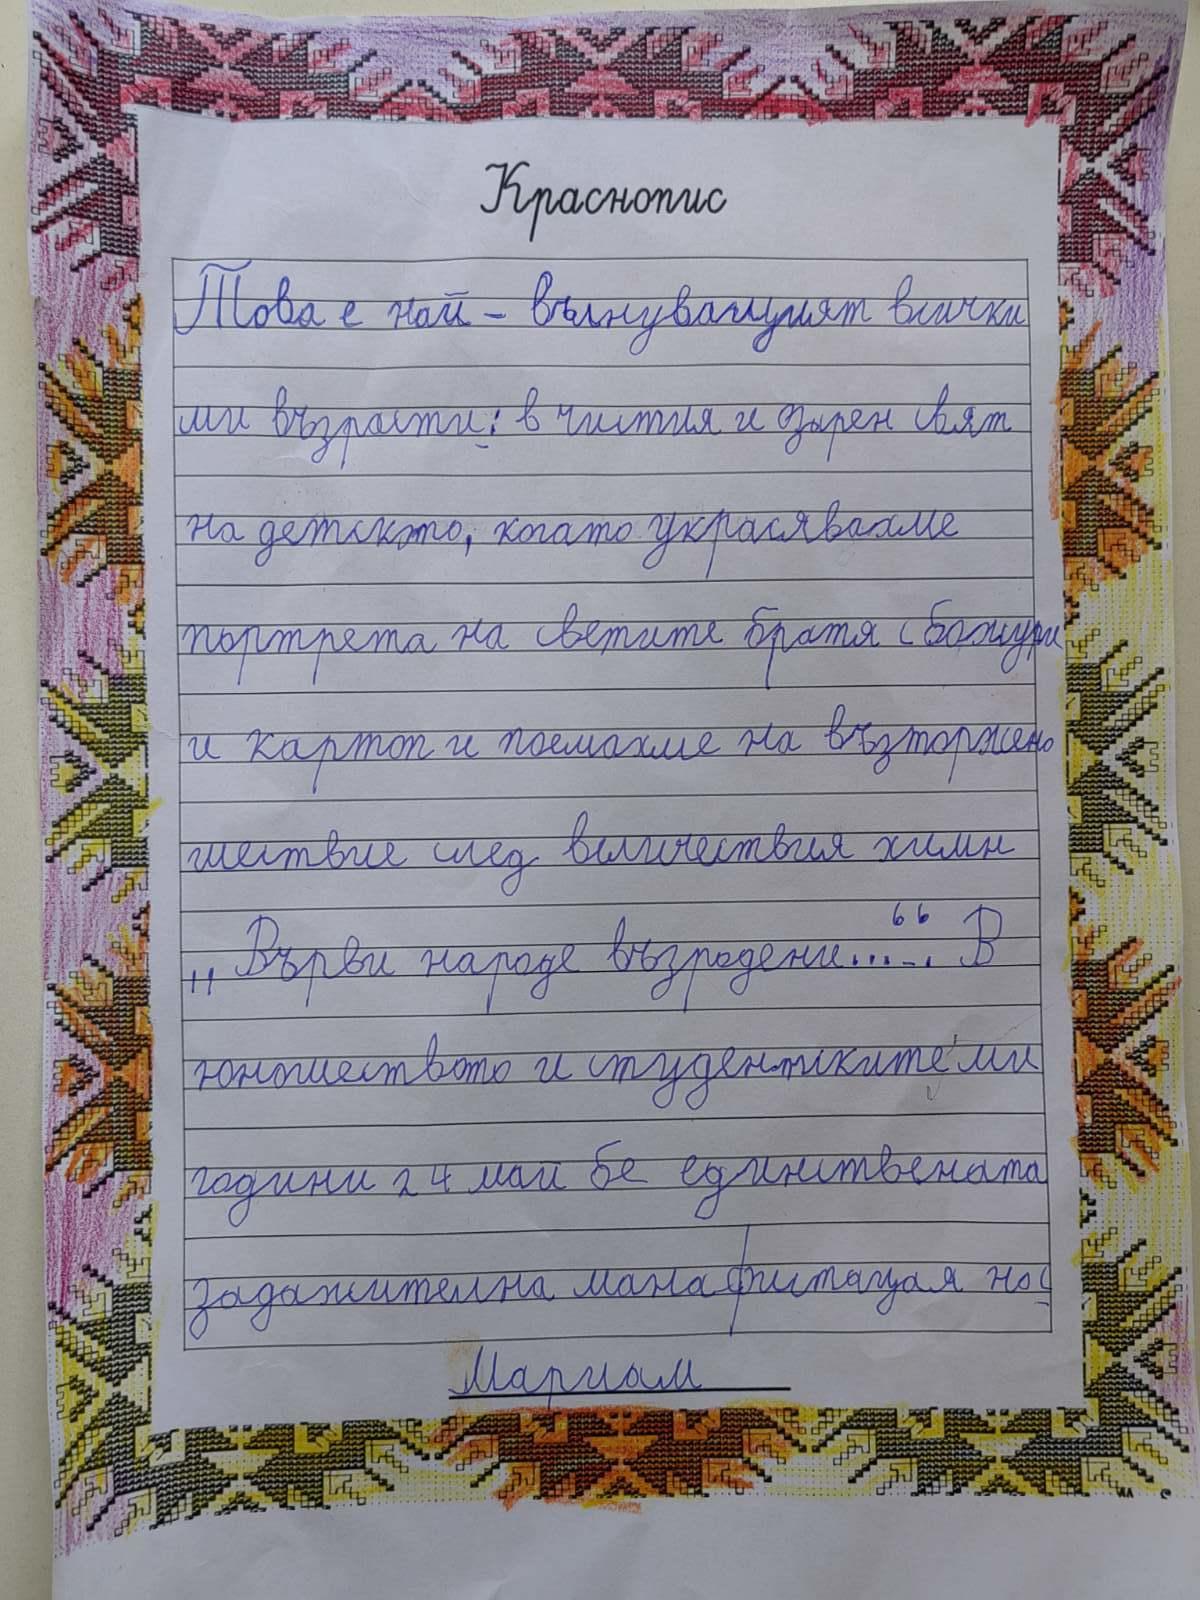 Краснопис
Това е най - вълнуващият всички
ми възрасти: в чистия и озарен свят
на детското, когато украсявахме
портрета на светите братя с божури
и картоп и поемахме на възторжено
шествие след величествия химн
„Върви народе възродени....“. В
юношеството и студентските ми
години 24 май бе единствената
задажителна манафистация нос
Мариам